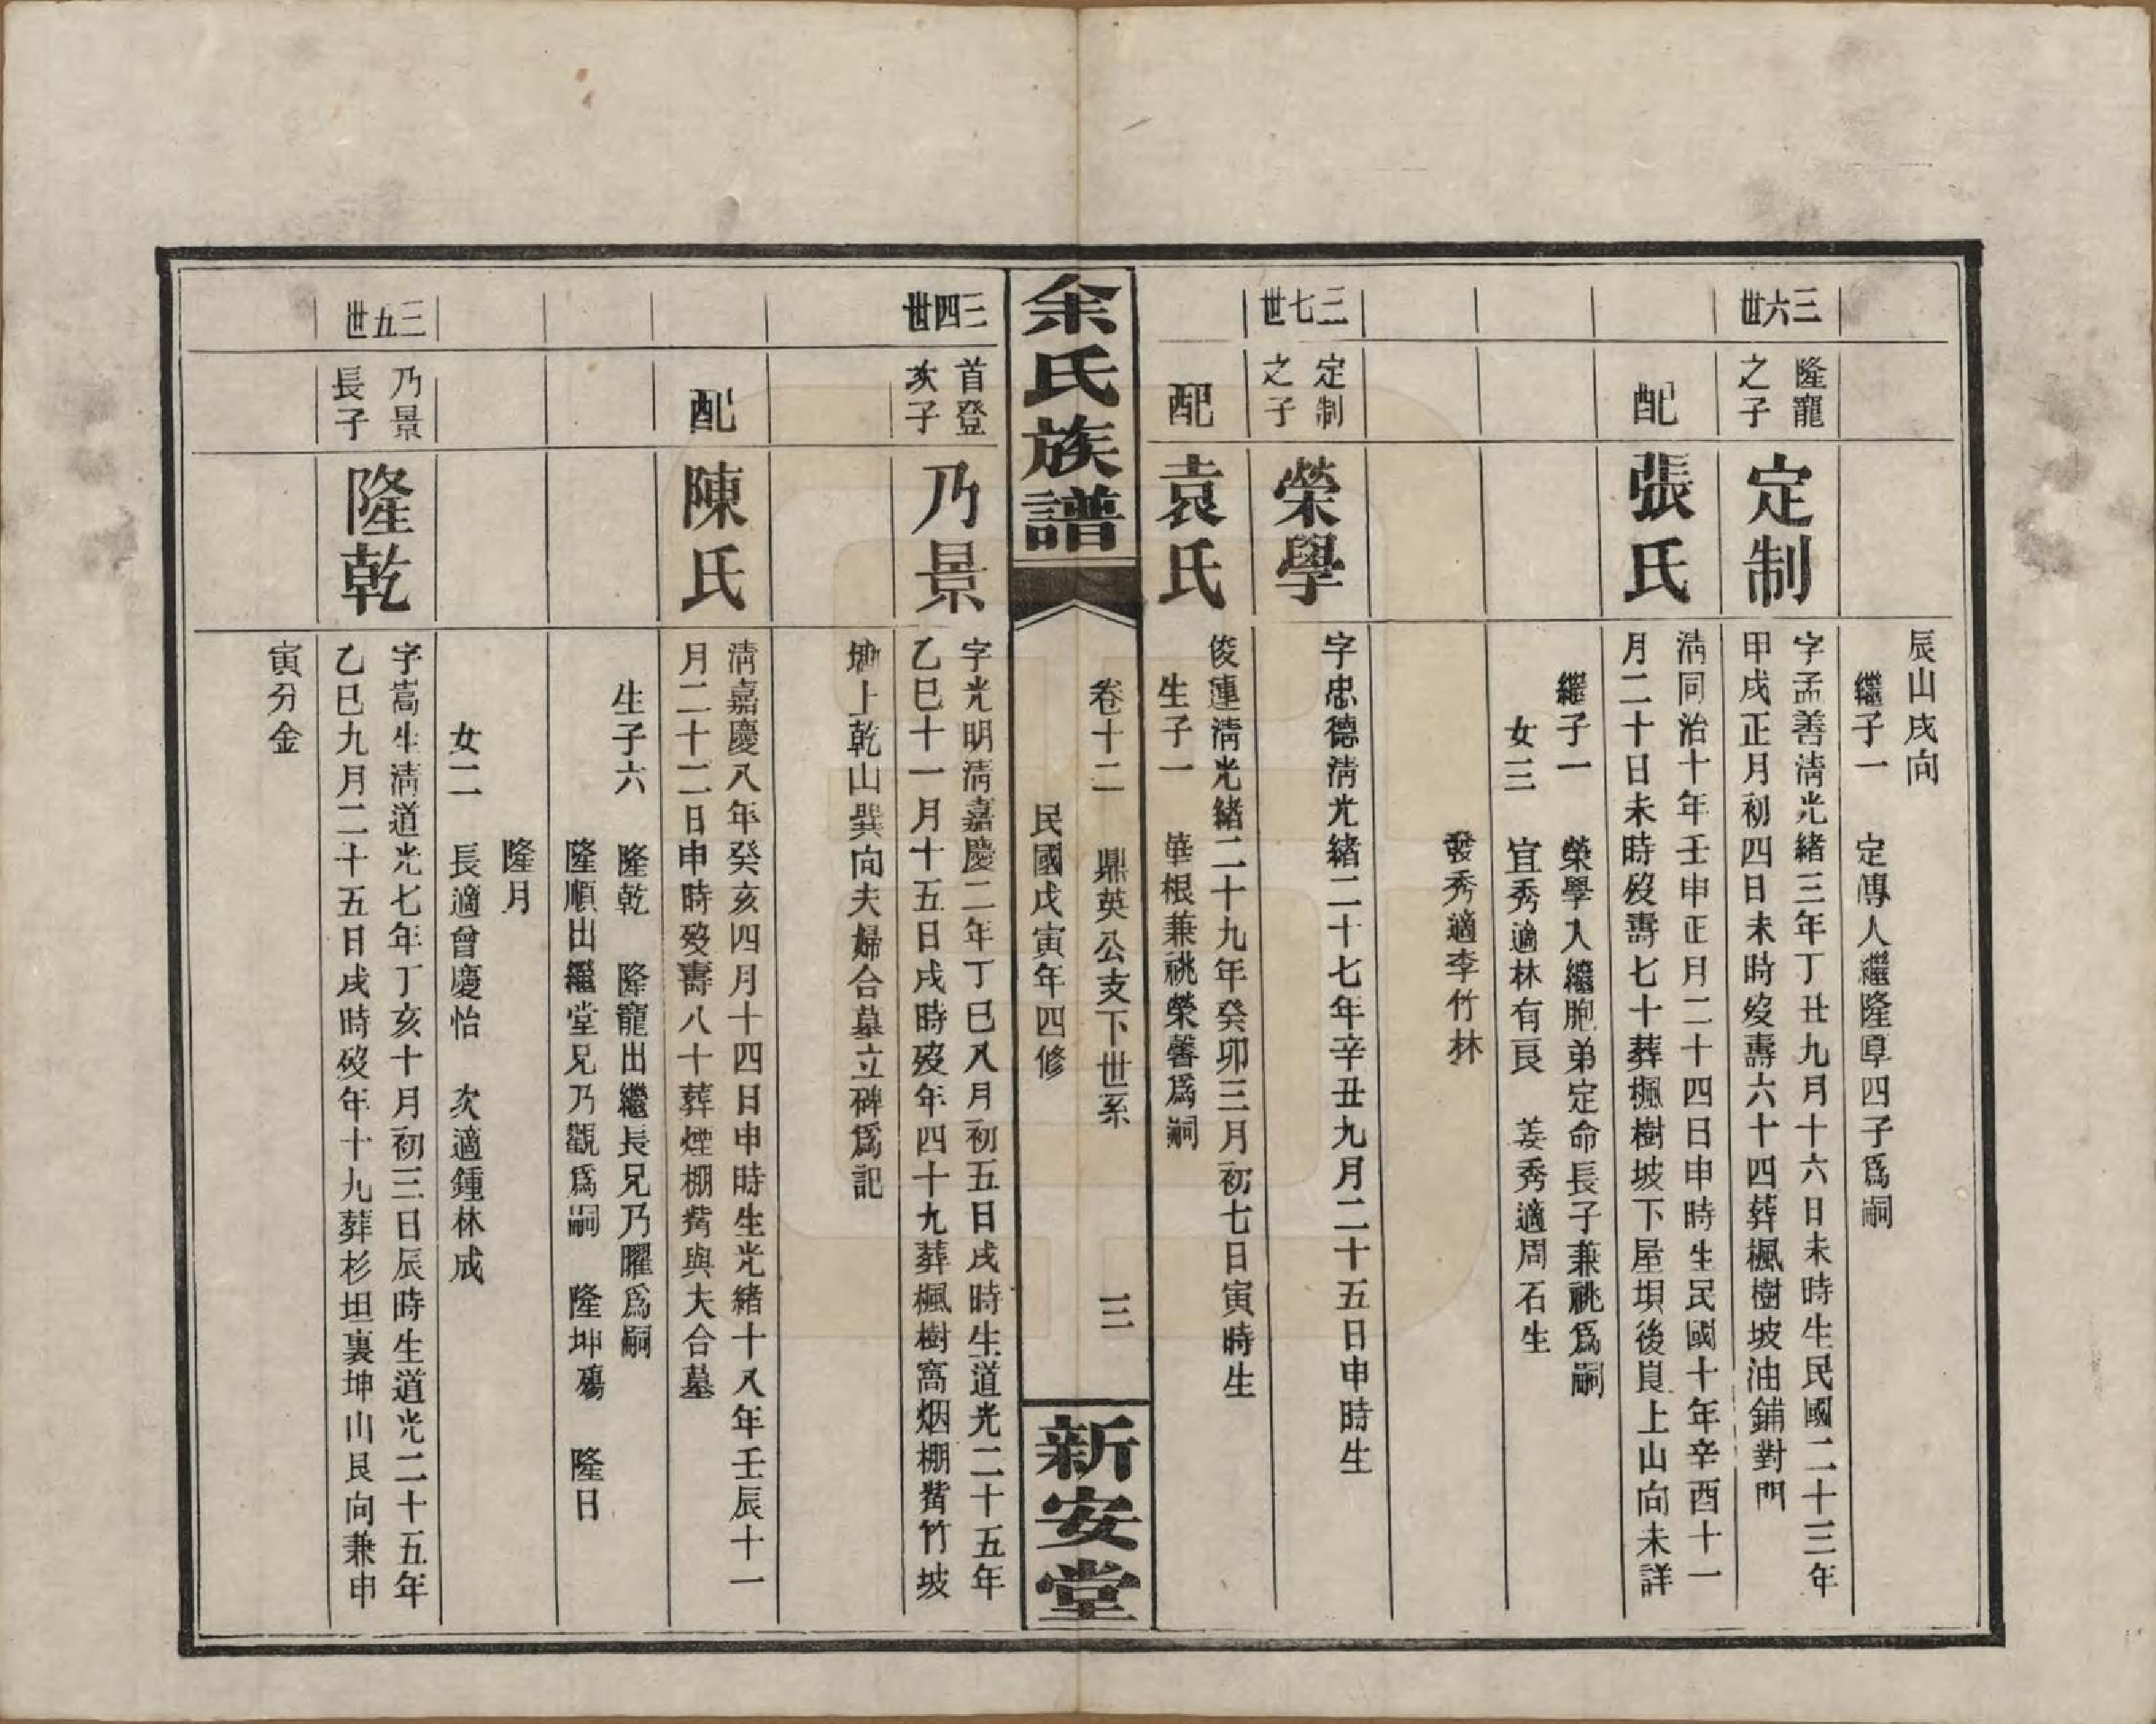 辰山戌向
繼子一 定傳入繼隆厚四子爲嗣
三六世
隆寵
之子
定制
字孟善清光緒三年丁丑九月十六日未時生民國二十三年
甲戌正月初四日未時歿壽六十四葬楓樹坡油鋪對門
配
張氏
清同治十年壬申正月二十四日申時生民國十年辛酉十一
月二十日未時歿壽七十葬楓樹坡下屋垻後艮上山向未詳
繼子一 榮學入繼胞弟定命長子兼祧爲嗣
女三 宜秀適林有良 姜秀適周石生
發秀適李竹林
三七世
定制
之子
榮學
字忠德清光緒二十七年辛丑九月二十五日申時生
配
袁氏
俊連清光緒二十九年癸卯三月初七日寅時生
生子一 華根兼祧榮馨爲嗣
余氏族譜
卷十二 鼎英公支下世系 三
民國戊寅年四修
新安堂
三四世
首登
次子
乃景
字光明清嘉慶二年丁巳八月初五日戌時生道光二十五年
乙巳十一月十五日戌時歿年四十九葬楓樹窩烟棚背竹坡
塝上乾山巽向夫婦合墓立碑爲記
配
陳氏
清嘉慶八年癸亥四月十四日申時生光緒十八年壬辰十一
月二十二日申時歿壽八十葬煙棚背與夫合墓
生子六 隆乾 隆寵出繼長兄乃曜爲嗣
隆順出繼堂兄乃觀爲嗣 隆坤殤 隆日
隆月
女二 長適曾慶怡 次適鍾林成
三五世
乃景
長子
隆乾
字嵩生清道光七年丁亥十月初三日辰時生道光二十五年
乙巳九月二十五日戌時歿年十九葬杉坦裏坤山艮向兼申
寅分金